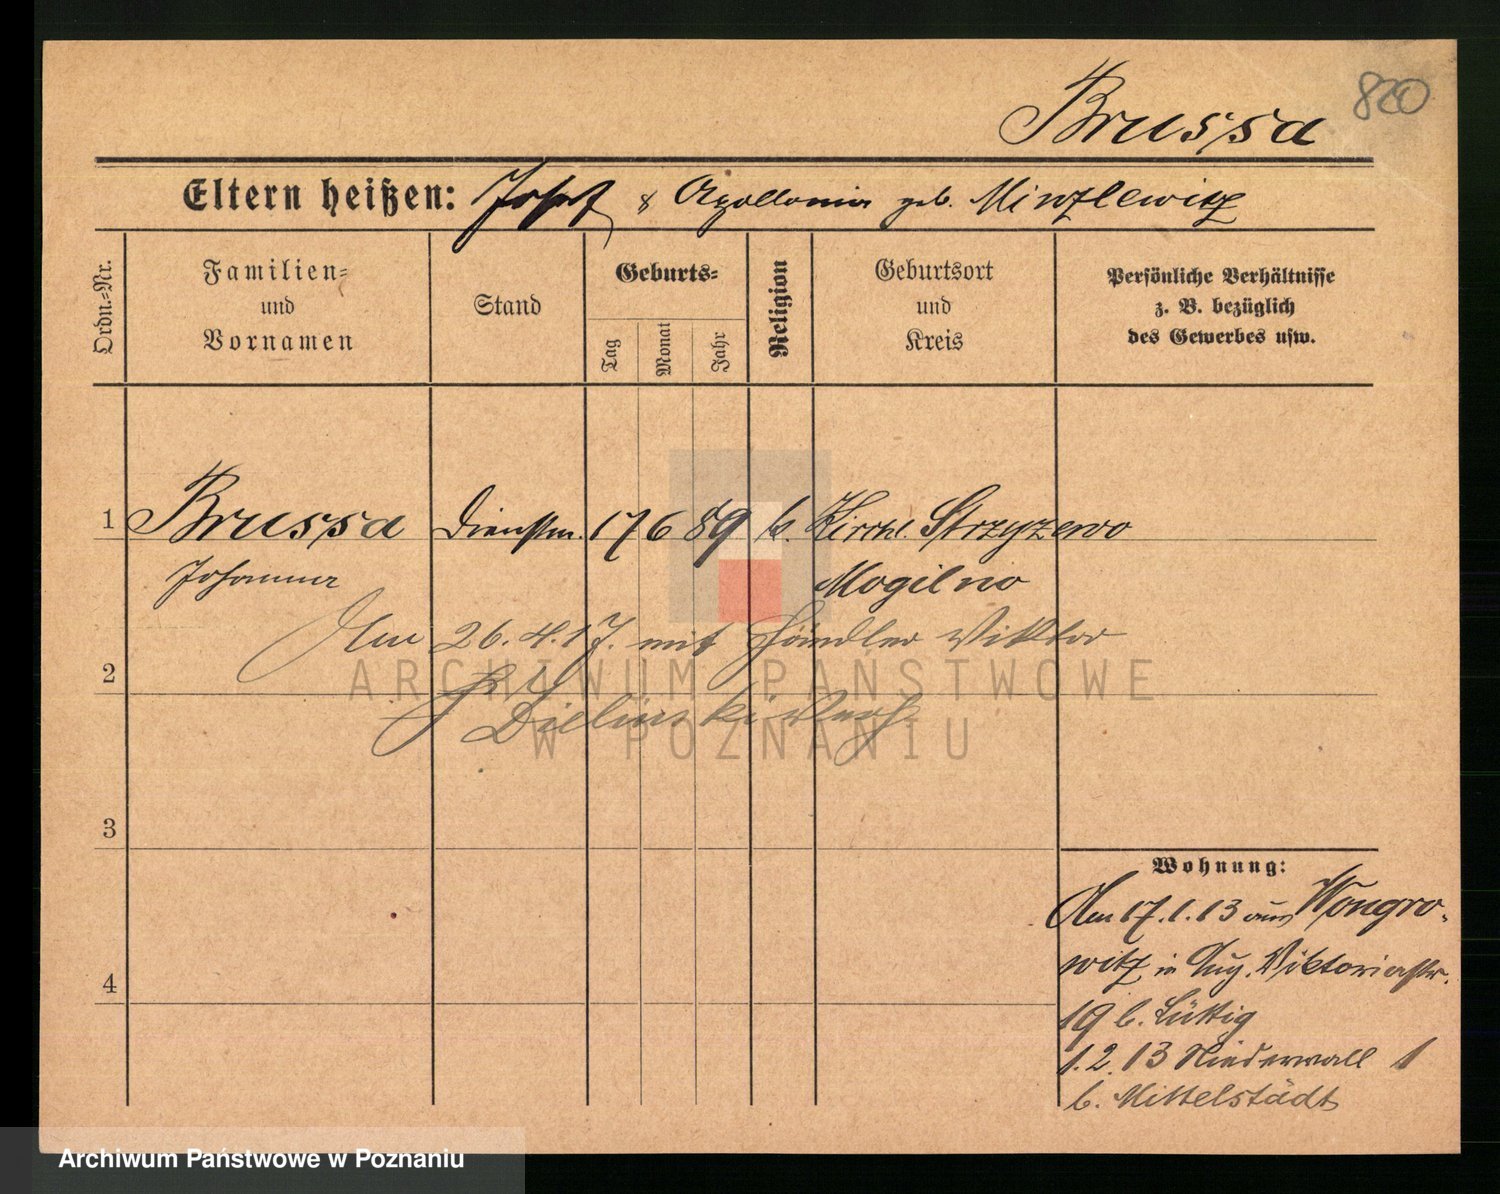 820
Brussa
Eltern heißen: Josef & Apollonia geb. Minzlewitz
Ordn.-Nr.
Familien- und Vornamen
Stand
Geburts-
Tag
Monat
Jahr
Religion
Geburtsort und Kreis
Persönliche Verhältnisse
z. B. bezüglich
des Gewerbes usw.
1 Brussa Dienstm. 17 6 89 k. Kirchl. Strzyzewo
Johanna Mogilno
Am 26.4.17. mit Händler Viktor
2
Zielinski verh.
3
4
Wohnung:
Am 17.1.13 aus Wongro-
witz in Aug. Viktoriastr.
19 b. Lüttig
1.2.13 Niederwall 1
b. Mittelstädt
ARCHIWUM PAŃSTWOWE
W POZNANIU
Archiwum Państwowe w Poznaniu